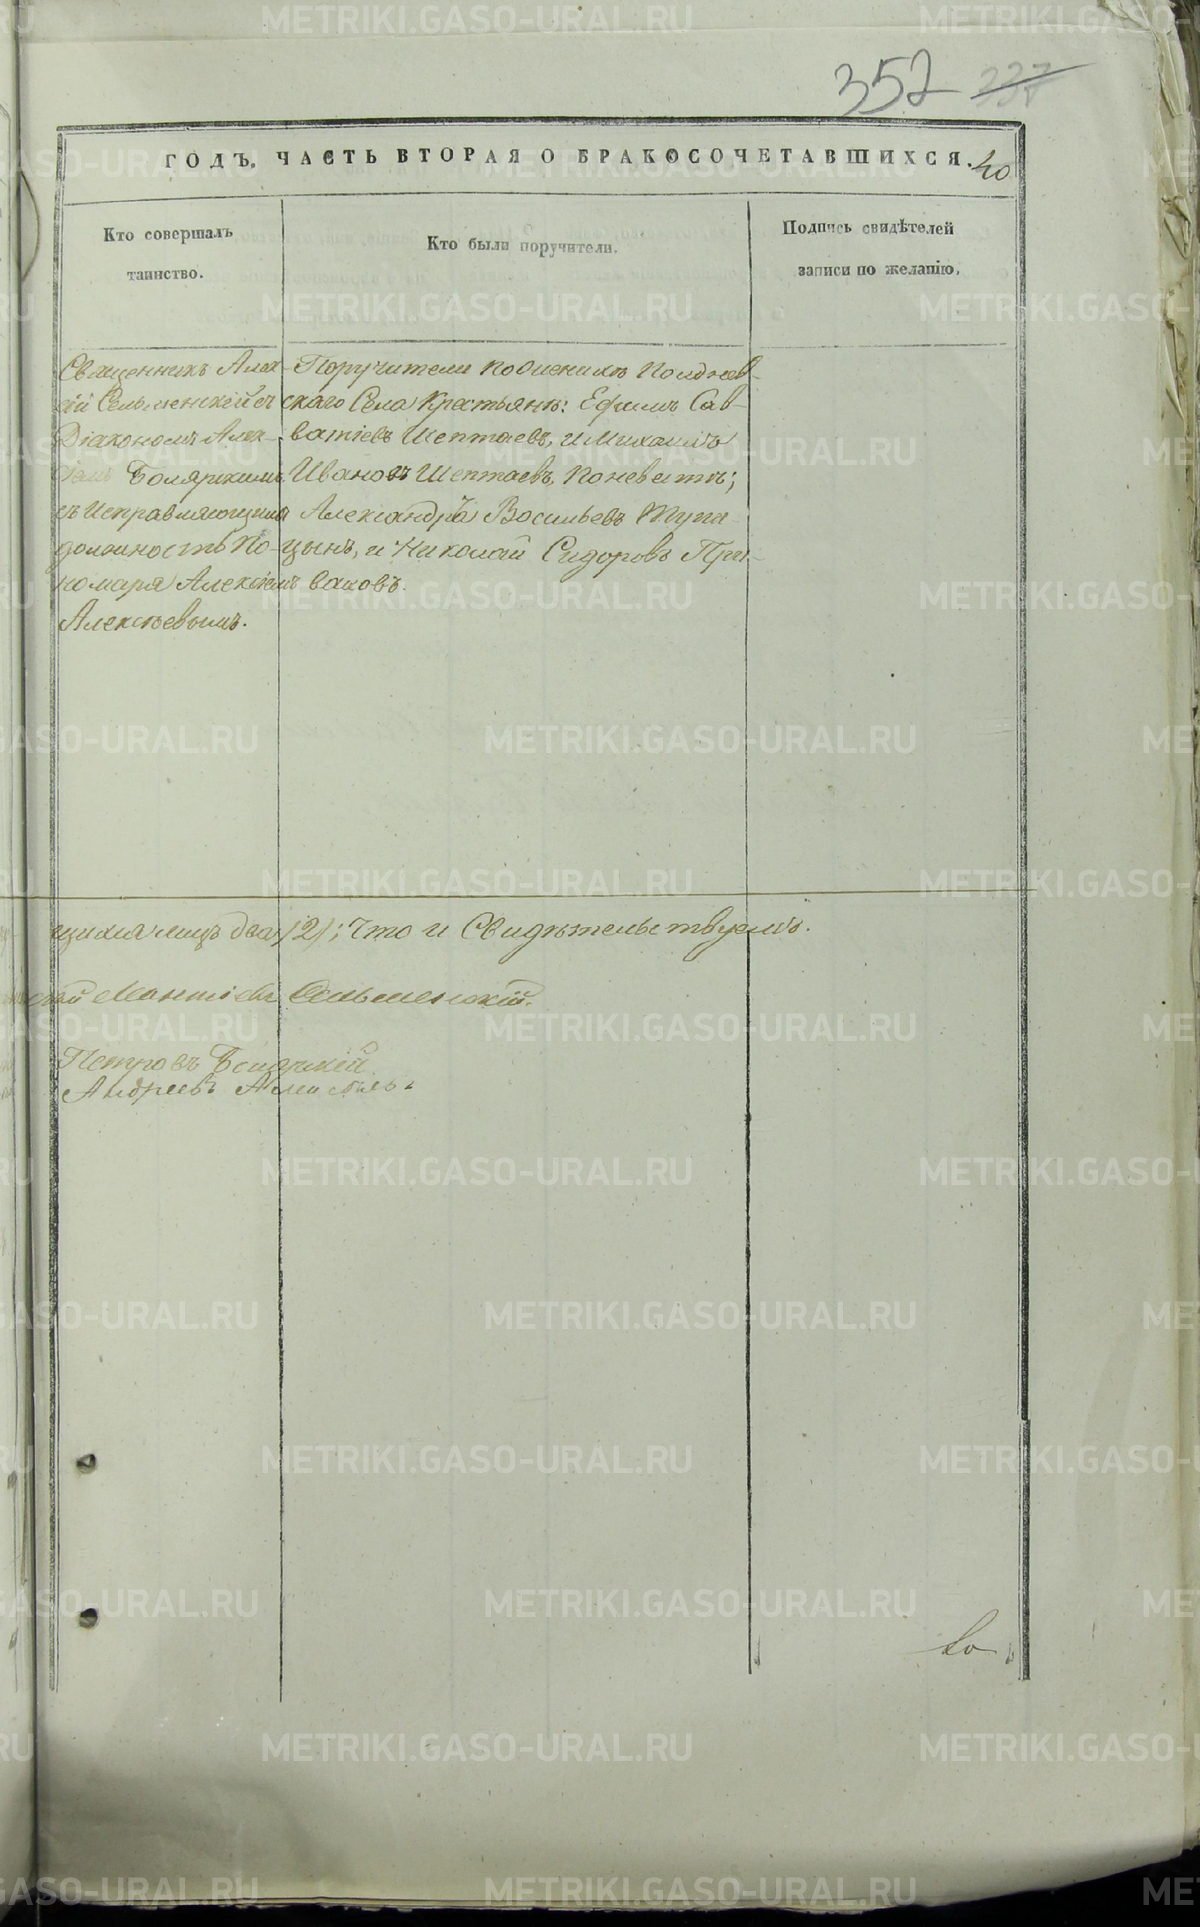 352 337
ГОДЪ. ЧАСТЬ ВТОРАЯ О БРАКОСОЧЕТАВШИХСЯ. 40
Кто совершалъ
таинство.
Кто были поручители.
Подпись свидѣтелей
записи по желанію.
Священникъ Алек-
сій Сельменскій съ
Діакономъ Алек-
Боляршимъ
съ исправляющимъ
должность По-
номаря Алексіемъ
Алексѣевымъ.
Поручители по женихѣ Полднев-
скаго Села Крестьяне: Ефимъ Сав-
ватіевъ Шептаевъ, и Михаилъ
Ивановъ Шептаевъ, по невестѣ;
Александръ Васильевъ Тупи-
цынъ, и Николай Сидоровъ При-
ваковъ.
лицъ два /2/; что и Свидѣтельствуемъ.
Сельменскій.
Петровъ
Андреевъ
METRIKI.GASO-URAL.RU